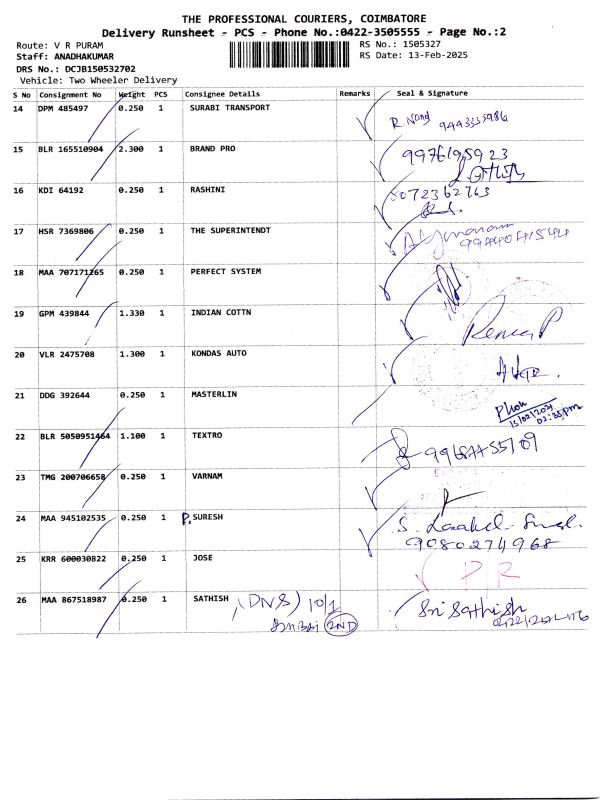 THE PROFESSIONAL COURIERS, COIMBATORE
Delivery Runsheet - PCS - Phone No.:0422-3505555 - Page No.:2
Route: V R PURAM
RS No.: 1505327
Staff: ANADHAKUMAR
RS Date: 13-Feb-2025
DRS No.: DCJB150532702
Vehicle: Two Wheeler Delivery
S No Consignment No Weight PCS Consignee Details Remarks Seal & Signature
14 DPM 485497 0.250 1 SURABI TRANSPORT
15 BLR 165510904 2.300 1 BRAND PRO
9976195923
16 KDI 64192 0.250 1 RASHINI
8072362763
17 HSR 7369806 0.250 1 THE SUPERINTENDT
18 MAA 707171265 0.250 1 PERFECT SYSTEM
19 GPM 439844 1.330 1 INDIAN COTTN
20 VLR 2475708 1.300 1 KONDAS AUTO
21 DDG 392644 0.250 1 MASTERLIN
22 BLR 5050951464 1.100 1 TEXTRO
23 TMG 200706658 0.250 1 VARNAM
24 MAA 945102535 0.250 1 P. SURESH
9080274968
25 KRR 600030822 0.250 1 JOSE
26 MAA 867518987 0.250 1 SATHISH (DNS) 10/1
Sri Sathish
2ND